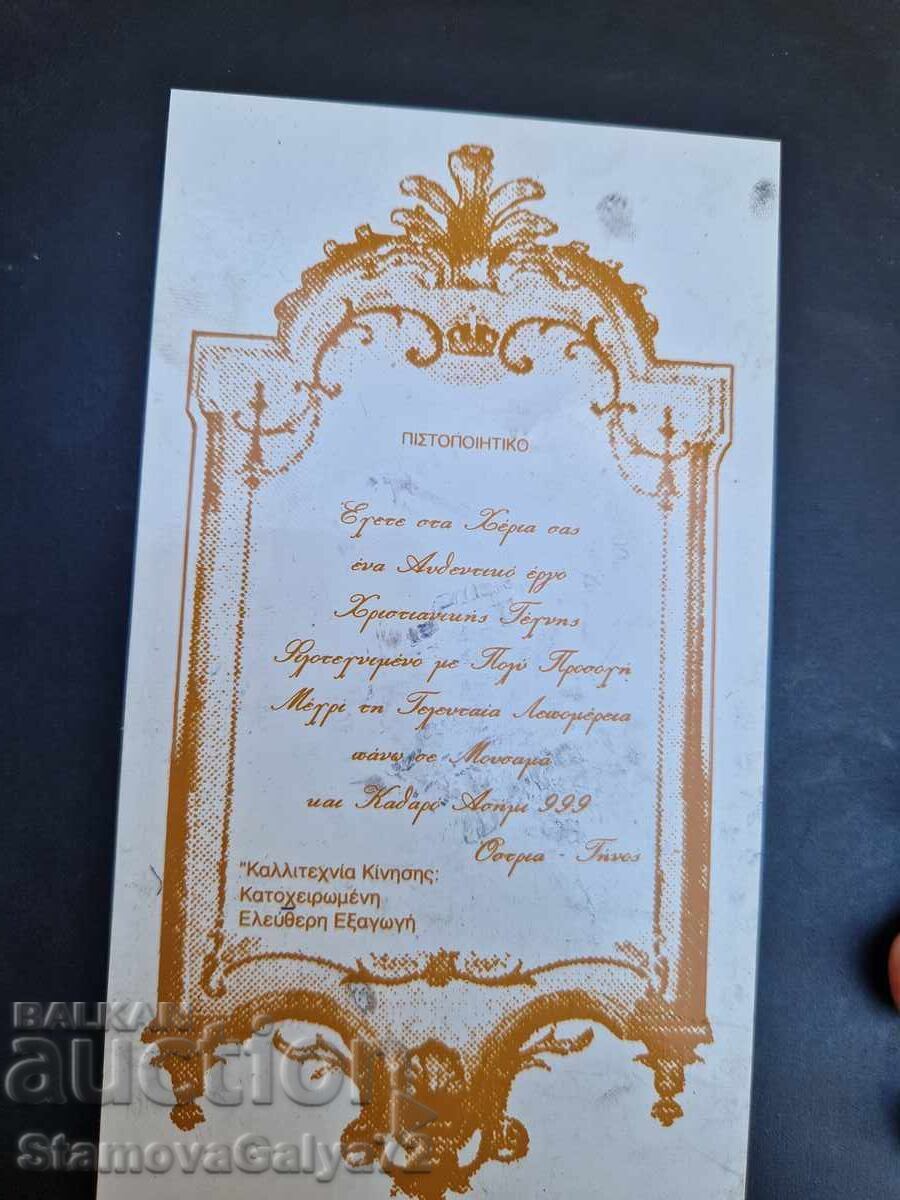 ΠΙΣΤΟΠΟΙΗΤΙΚΟ
Έχετε στα Χέρια σας
ένα Αυθεντικό έργο
Χριστιανικής Τέχνης
Φιλοτεχνιμένο με Πολύ Προσοχή
Μέχρι τη Τελευταία Λεπομέρεια
πάνω σε Μουσαμά
και Καθαρό Ασήμι 999
Όστρια - Τήνος
"Καλλιτεχνία Κίνησης:
Κατοχειρωμένη
Ελεύθερη Εξαγωγή
BALKAN
auction
StamovaGalya72